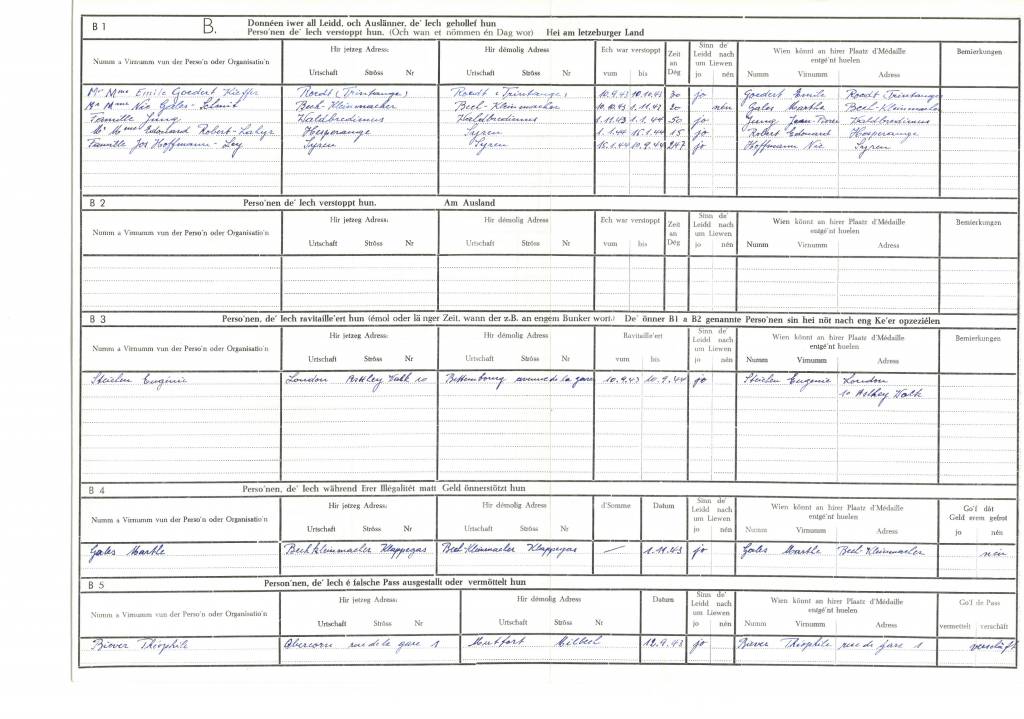 B 1 B. Donnéen iwer all Leidd, och Auslänner, de' Iech gehollef hun
Perso'nen de' Iech verstoppt hun. (Och wan et nömmen én Dag wor) Hei am letzeburger Land
Numm a Virnumm vun der Perso'n oder Organisatio'n Hir jetzeg Adress: Hir démolig Adress Ech war verstoppt Zeit an Dég Sinn de' Leidd nach um Liewen Wien könnt an hirer Plaatz d'Médaille entgé'nt huelen Bemierkungen
Urtschaft Ströss Nr Urtschaft Ströss Nr vum bis jo nén Numm Virnumm Adress
Mr Mme Emile Goedert Kieffer Roedt (Trintange) Roedt (Trintange) 10.9.43 10.10.43 30 jo Goedert Emile Roedt Trintange
Mr Mme Nic Gales-Schmit Bech-Kleinmacher Bech-Kleinmacher 10.10.43 1.11.43 20 nén Gales Marthe Bech-Kleinmacher
Famille Jung Waldbredimus Waldbredimus 1.11.43 1.1.44 50 jo Jung Jean-Pierre Waldbredimus
Mr Mme Edouhard Robert- Hesperange Syren 1.1.44 15.1.44 15 jo Robert Edouard Hesperange
Famille Jos Hoffmann-Ley Syren Syren 15.1.44 10.9.44 247 jo Hoffmann Nic Syren
B 2 Perso'nen de' Iech verstoppt hun. Am Ausland
Numm a Virnumm vun der Perso'n oder Organisatio'n Hir jetzeg Adress: Hir démolig Adress Ech war verstoppt Zeit an Dég Sinn de' Leidd nach um Liewen Wien könnt an hirer Plaatz d'Médaille entgé'nt huelen Bemierkungen
Urtschaft Ströss Nr Urtschaft Ströss Nr vum bis jo nén Numm Virnumm Adress
B 3 Perso'nen, de' Iech ravitaille'ert hun (émol oder lä nger Zeit, wann der z.B. an engem Bunker wort.) De' önner B1 a B2 genannte Perso'nen sin hei nöt nach eng Ke'er opzeziélen
Numm a Virnumm vun der Perso'n oder Organisatio'n Hir jetzeg Adress: Hir démolig Adress Ravitaille'ert Sinn de' Leidd nach um Liewen Wien könnt an hirer Plaatz d'Médaille entgé'nt huelen Bemierkungen
Urtschaft Ströss Nr Urtschaft Ströss Nr vum bis jo nén Numm Virnumm Adress
Steichen Eugénie London Astley Walk 10 Bettembourg avenue de la gare 10.9.43 10.9.44 jo Steichen Eugenie London
10 Asthey Walk
B 4 Perso'nen, de' Iech während Erer Illégalitét matt Geld önnerstötzt hun
Numm a Virnumm vun der Perso'n oder Organisatio'n Hir jetzeg Adress: Hir démolig Adress d'Somme Datum Sinn de' Leidd nach um Liewen Wien könnt an hirer Plaatz d'Médaille entgé'nt huelen Go'f dât Geld erem gefrot
Urtschaft Ströss Nr Urtschaft Ströss Nr jo nén Numm Virnumm Adress jo nén
Gales Marthe Bech Kleinmacher Klappegas Bech-Kleinmacher Klappegas — 1.11.43 jo Gales Marthe Bech-Kleinmacher nén
B 5 Person'nen, de' Iech é falsche Pass ausgestallt oder vermöttelt hun
Numm a Virnumm vun der Perso'n oder Organisatio'n Hir jetzeg Adress: Hir démolig Adress Datum Sinn de' Leidd nach um Liewen Wien könnt an hirer Plaatz d'Médaille entgé'nt huelen Go'f de Pass
Urtschaft Ströss Nr Urtschaft Ströss Nr jo nén Numm Virnumm Adress vermettelt verschäft
Biever Théophile Obercorn rue de la gare 1 Mutfort 12.9.43 jo Biever Théophile rue de gare 1 verschäft